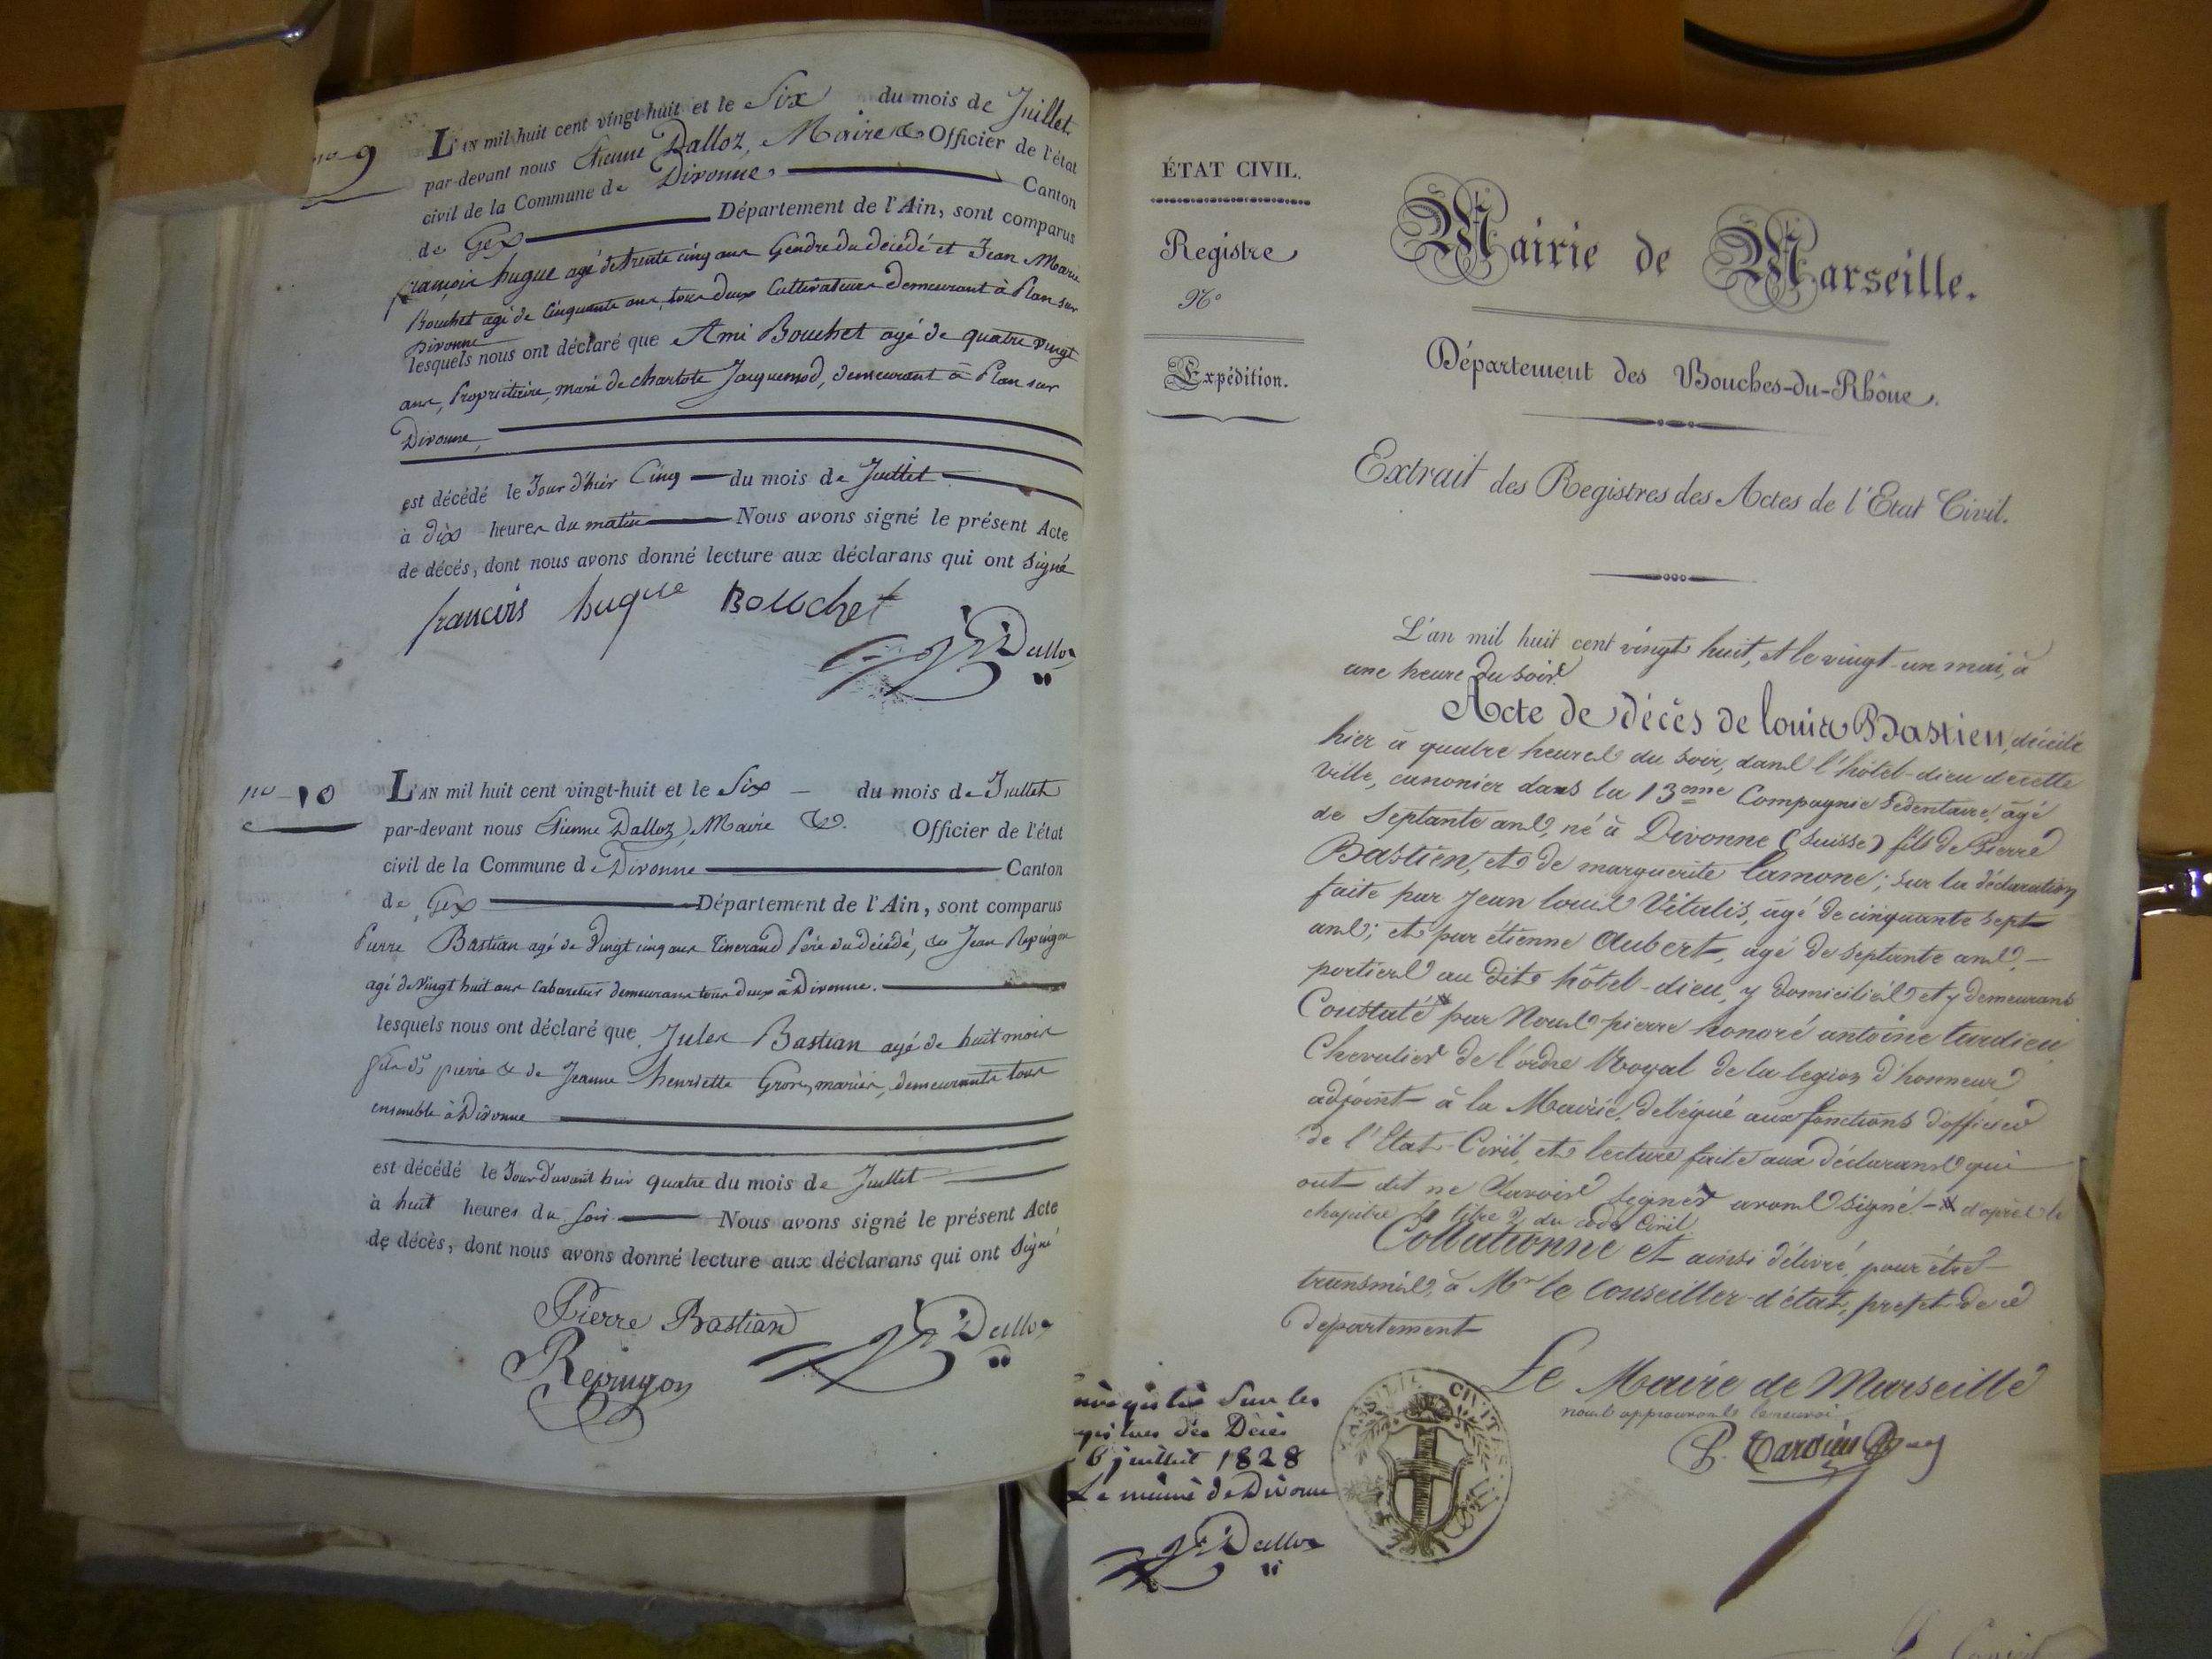 no 9
L'AN mil huit cent vingt-huit et le Six du mois de Juillet
par-devant nous Etienne Dalloz, Maire & Officier de l'état
civil de la Commune de Divonne Canton
de Gex Département de l'Ain, sont comparus
françois hugue agé de trente cinq ans Gendre du décédé et Jean Marie
Bouchet agé de Cinquante ans, tous deux Cultivateurs demeurant à Plan sur
Divonne
lesquels nous ont déclaré que Ami Bouchet agé de quatre vingt
ans, Propriétaire, mari de charlote Jacquemod, demeurant à Plan sur
Divonne,
est décédé le Jour d'hier Cinq du mois de Juillet
à dix heures du matin Nous avons signé le présent Acte
de décés, dont nous avons donné lecture aux déclarans qui ont Signé
francois hugue Bouchet
Dalloz
no 10
L'AN mil huit cent vingt-huit et le Six du mois de Juillet
par-devant nous Etienne Dalloz, Maire &. Officier de l'état
civil de la Commune de Divonne Canton
de Gex Département de l'Ain, sont comparus
Pierre Bastian agé de Vingt cinq ans Père du décédé, & Jean Repingon
agé de Vingt huit ans Cabaretier demeurans tous deux à Divonne.
lesquels nous ont déclaré que Jules Bastian agé de huit mois
fils de pierre & de Jeanne henriette Gros, mariés, demeurants tous
ensemble à Divonne
est décédé le Jour d'avant hier quatre du mois de Juillet
à huit heures du soir Nous avons signé le présent Acte
de décès, dont nous avons donné lecture aux déclarans qui ont Signé
Pierre Bastian
Repingon
Dalloz
ÉTAT CIVIL.
Registre
N°
Expédition.
Mairie de Marseille.
Département des Bouches-du-Rhône.
Extrait des Registres des Actes de l'Etat Civil.
L'an mil huit cent vingt huit, et le vingt-un mai, à
une heure du soir.
Acte de décès de louis Bastien, décédé
hier à quatre heures du soir, dans l'hôtel-dieu de cette
ville, canonier dans la 13eme Compagnie Sédentaire, âgé
de Septante ans, né à Divonne (Suisse) fils de Pierre
Bastien, et de marguerite lamone; sur la déclaration
faite par Jean louis Vitalis, âgé de cinquante sept
ans; et par étienne Aubert, agé de septante ans,
portiers au dit hôtel-dieu, y domiciliés et y demeurans
Constaté par Nous pierre honoré antoine tardieu
Chevalier de l'ordre Royal de la legion d'honneur
adjoint à la Mairie, délégué aux fonctions d'officier
de l'Etat-Civil, et lecture faite aux déclarans qui
ont dit ne Savoir Signer avons signé - d'après le
chapitre 4 titre 2 du code Civil
Collationné et ainsi délivré, pour être
transmis, à Mr le Conseiller-d'état, préfet de ce
département
Le Maire de Marseille
nous approuvons le renvoi
P. Tardieu
MASSILIA CIVITAS
sur les
des Décès
6 juillet 1828
Le maire de Divonne
Dalloz